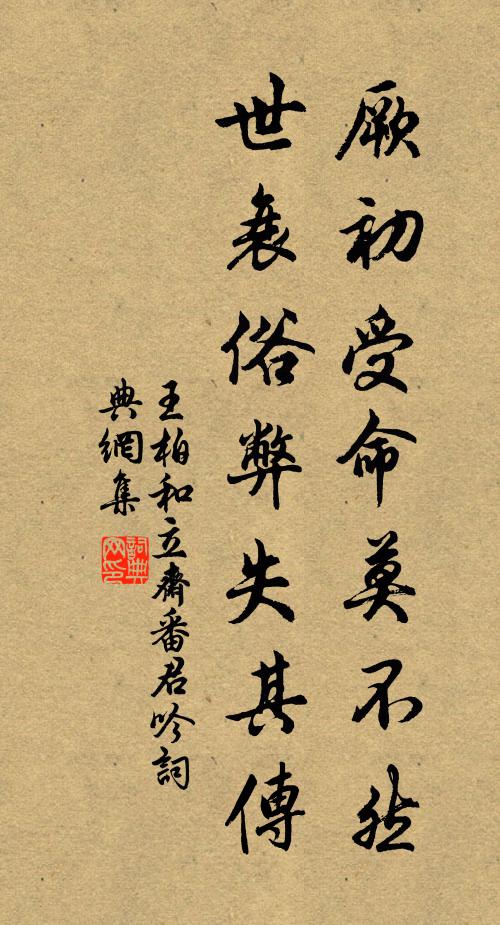 厥初受命莫不然
世衰俗弊失其傳
王柏和立齋番君吟詞
典網集
詞典
网印